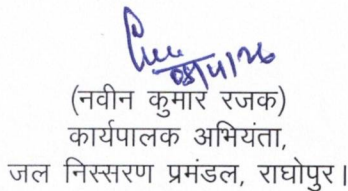 08/4/26
(नवीन कुमार रजक)
कार्यपालक अभियंता,
जल निस्सरण प्रमंडल, राघोपुर।